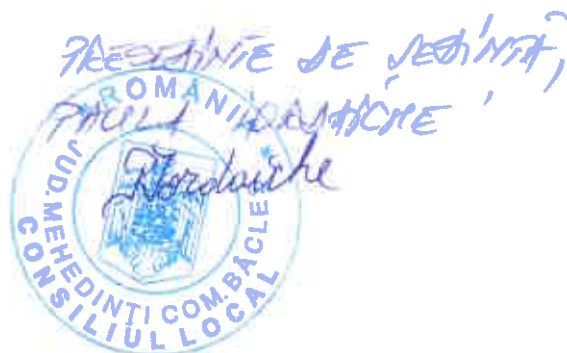 PREȘEDINTE DE ȘEDINȚĂ,
PAULA IORDACHE
Iordache
ROMÂNIA
JUD. MEHEDINȚI COM. BÂCLEȘ
CONSILIUL LOCAL